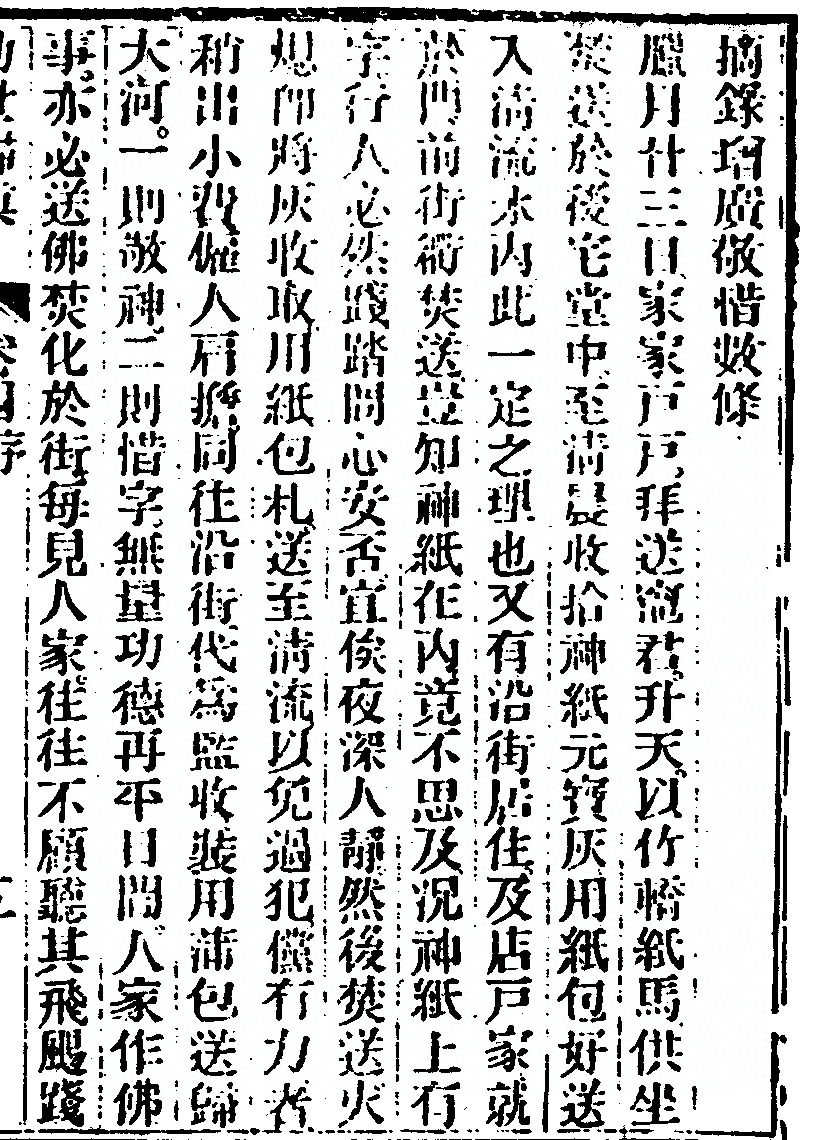 摘錄增廣敬惜數條
臘月廿三日家家戶戶拜送竈君升天以竹轎紙馬供坐
焚送於後宅堂中至清晨收拾神紙元寶灰用紙包好送
入淸流水內此一定之理也又有沿街居住及店戶家就
於門前街衢焚送豈知神紙在內竟不思及况神紙上有
字行人必然踐踏問心安否宜俟夜深人靜然後焚送火
熄卽將灰收取用紙包札送至淸流以免過犯儻有力者
稍出小費僱人肩擔同往沿街代爲監收裝用蒲包送歸
大河。一則敬神二則惜字無量功德再平日間人家作佛
事。亦必送佛焚化於街每見人家往往不顧聽其飛颺踐